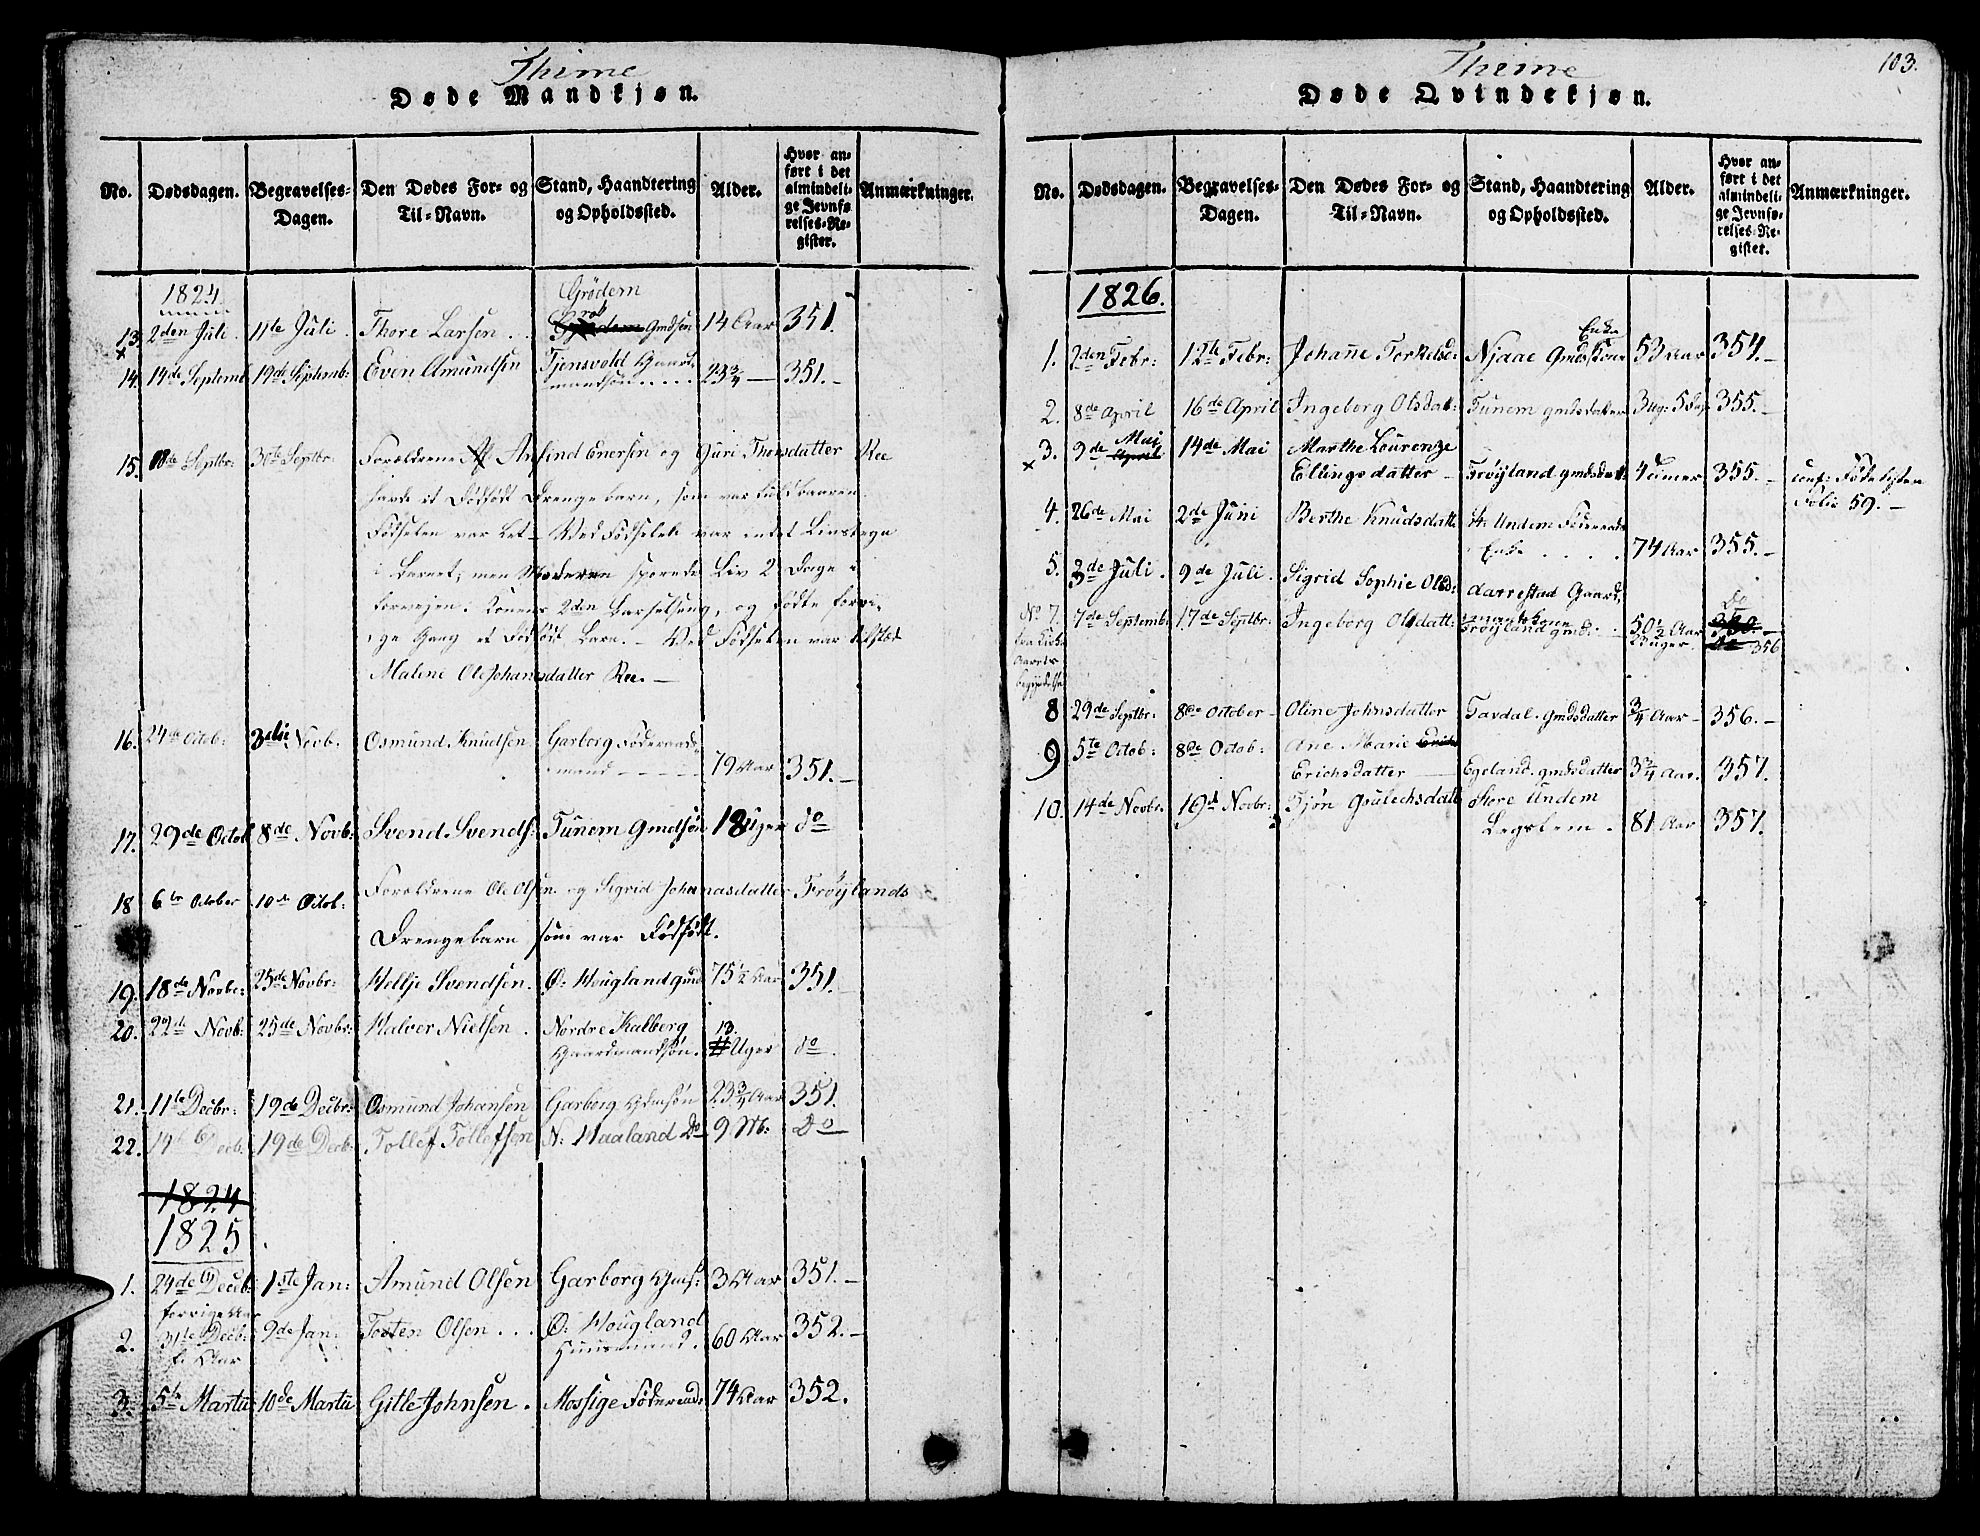 Thime
Døde Mandkjøn.
No. Dødsdagen. Begravelses-Dagen. Den Dødes For- og Til-Navn. Stand, Haandtering og Opholdssted. Alder. Hvor anført i det almindelige Jevnførelses-Register. Anmærkninger.
1824
13. 2den Juli 11te Juli Thore Larsen Grödem Gmdsön 14 Aar 351.
14. 14de Septemb 19de Septemb: Even Amundsen Tjensvold Gaardmandsön 23 3/4 — 351.—
15. Septbr: 30te Septbr: Forældrene Arnfind Enersen og Guri Thorsdatter Ree
havde et Dødfødt Drengebarn, som var fuldbaaren.
Födselen var Let — Ved Födselen var intet Livstegn
i Barnet, men Moderen sporede Liv 2 Dage i
forveien. Konens 2den Barselseng, og födte forri-
ge Gang et Dødfødt Barn. — Ved Födselen var tilstæde
Malene OleJohansdatter Ree.—
16. 24de Octob: 3die Novb. Osmund Knudsen Garborg Föderaads-
mand — 79 Aar 351.—
17. 29de Octob 8de Novb: Svend Svends: Tunem Gmdsön 18 Uger do
18 6te October 10de Octob: Forældrene Ole Olsen og Sigrid Johannasdatter Fröylands
Drengebarn som var Dödfödt.
19. 18de Novbr: 25de Novbr: Helje Svendsen. Ø: Hougland gmd 75 1/2 Aar 351.—
20. 22de Novb: 25de Novbr: Halvor Nielsen. Nordre Kalberg
Gaardmandsön. 13. Uger do.
21. 11te Decbr: 19de Decbr: Osmund Johansen Garborg Gdmsön 23 3/4 Aar 351.
22. 19de Decb. 19de Decb: Tollef Tollefsen N: Haaland Do 9 M: Do
1824
1825
1. 24de Decb: 1ste Jan: Amund Olsen Garborg Gms: 3 Aar 351.—
forrige Aar
2. 31te Decb: 9de Jan: Tosten Olsen... Ø: Hougland 60 Aar 352.—
f. Aar Huusmand.
3. 5te Martii 10de Martii Gitle Johnsen. Mossige Föderaad: 74 Aar 352.
103.
Thime
Døde Qvindekjøn.
No. Dødsdagen. Begravelses-Dagen. Den Dødes For- og Til-Navn. Stand, Haandtering og Opholdssted. Alder. Hvor anført i det almindelige Jevnførelses-Register. Anmærkninger.
1826.
1. 2den Febr: 12te Febr: Johanne Torkelsd: Njaae Gmds Enke 53 Aar 354.—
2. 8de April 16de April Ingeborg Olsdat: Tunem gmdsdatter 3 Ug: 5 Da 355.—
3. 9de Mai 14de Mai Marthe Lourenze
Ellingsdatter — Fröyland gmdsdatt: 4 Timer 355.— conf: Födelisten
Folio 59.—
4. 26de Mai 2de Juni Berthe Knudsdatt: St: Undem Föderaads
Enke .... 74 Aar 355.—
5. 3de Juli. 9de Juli. Sigrid Sophie Olsd: Aarrestad Gaard-
mands kone 50 1/2 Aar Do
No 7. 7de Septemb: 17de Septbr: Ingeborg Olsdatt: Fröyland gmd: 23 uger 356
8 29de Septbr: 8de October — Oline Johnsdatter Tavdal. Gmdsdatter 3/4 Aar — 356.—
9 5te Octob: 8de Octob: Ane Marie
Erichsdatter — Egeland. gmdsdatter 3 3/4 Aar. 357.
10. 14de Novbr. 19de Novbr: Tjön Gsulechsdatt: Store Undem
Legslem. 81 Aar 357.